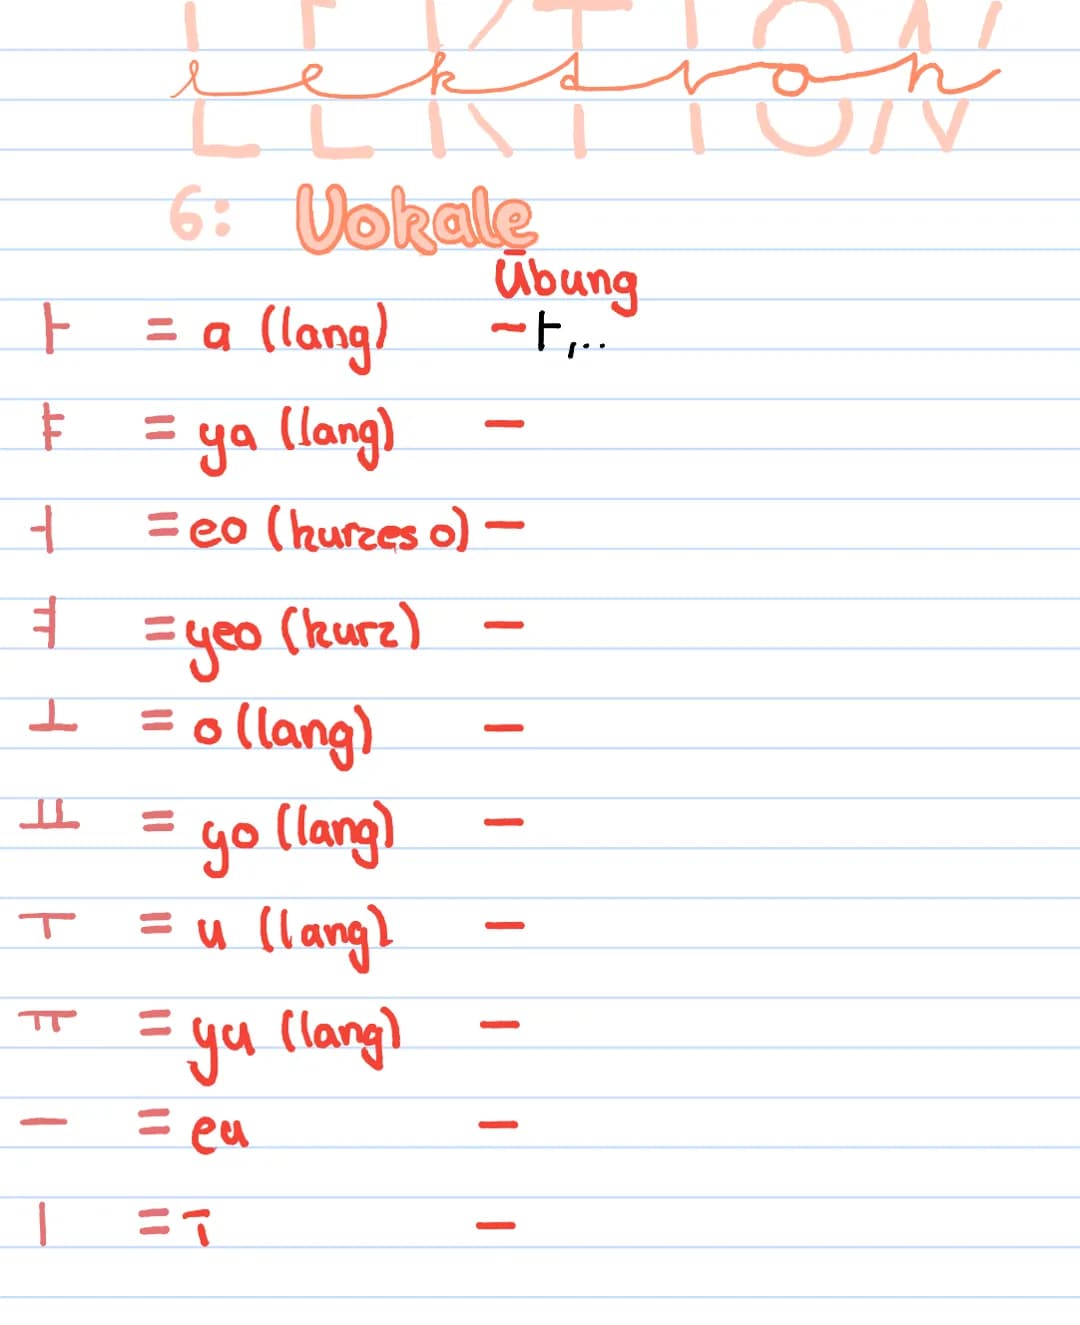 LEKTION
lektion
LEKTION
6: Vokale
Übung
ㅏ = a (lang) - ㅏ,..
ㅑ = ya (lang) -
ㅓ = eo (kurzes o) -
ㅕ = yeo (kurz) -
ㅗ = o (lang) -
ㅛ = yo (lang) -
ㅜ = u (lang) -
ㅠ = yu (lang) -
ㅡ = eu -
ㅣ = i -